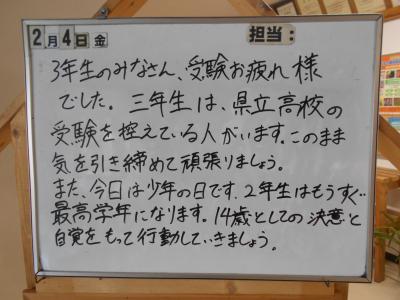 2月4日金 担当:
3年生のみなさん、受験お疲れ様
でした。三年生は、県立高校の
受験を控えている人がいます。このまま
気を引き締めて頑張りましょう。
また、今日は少年の日です。2年生はもうすぐ
最高学年になります。14歳としての決意と
自覚をもって行動していきましょう。